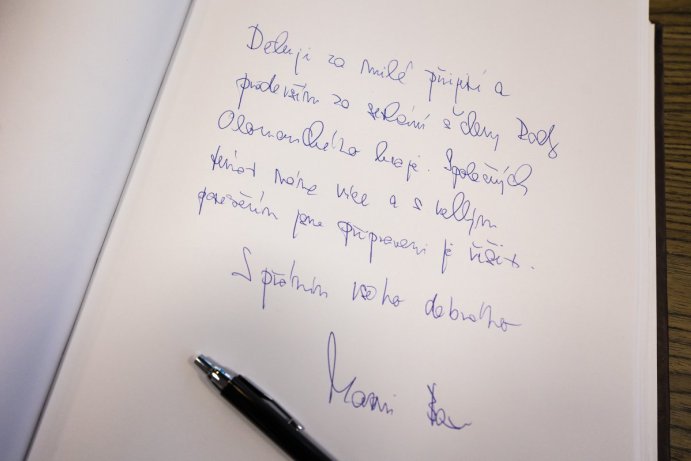 Děkuji za milé přijetí a
především za setkání s členy Rady
Olomouckého kraje. Společných
témat máme více a s velkým
jsme připraveni je řešit.
S přáním všeho dobrého